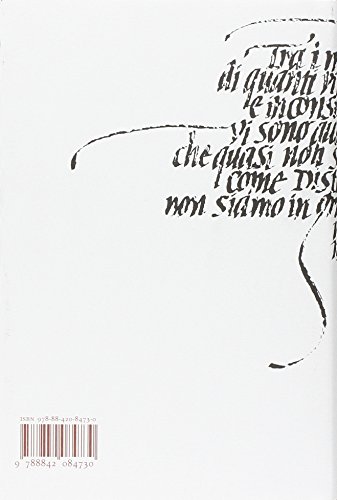 Tra i m
di quanti
e incons
vi sono qu
che quasi non s
come Dis
non siamo in gr
ISBN 978-88-420-8473-0
9 788842 084730